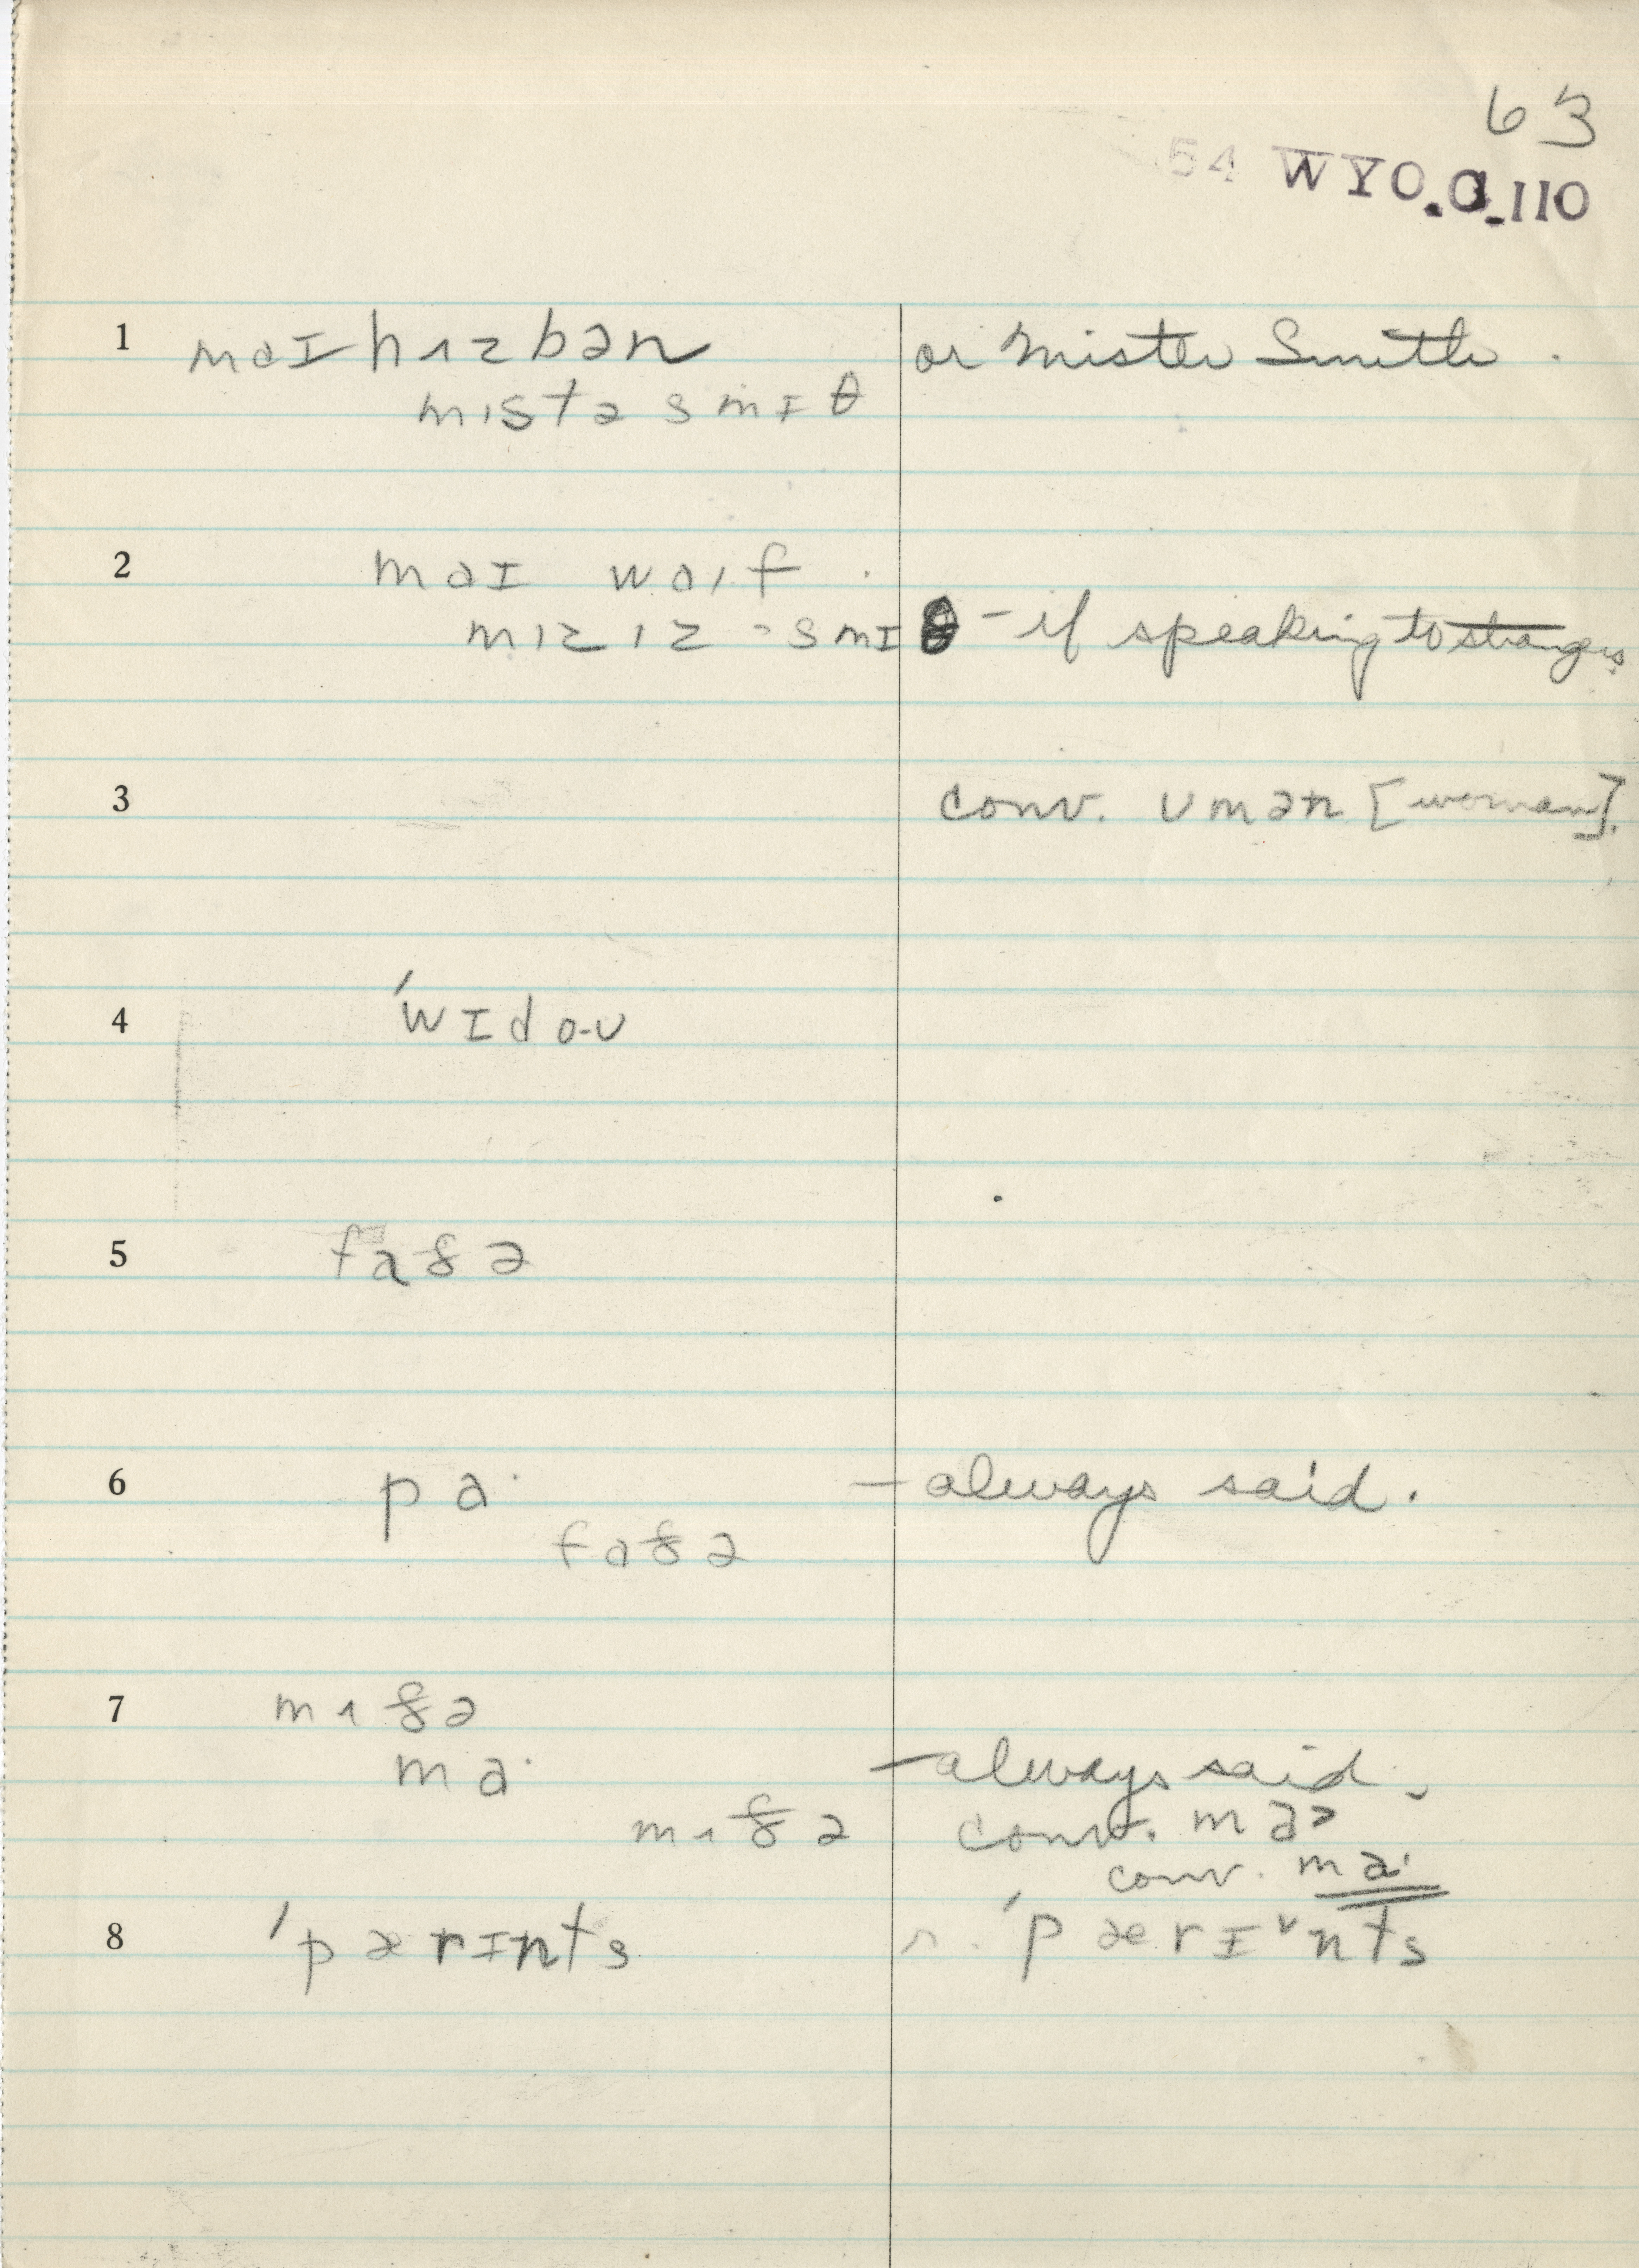 63
54 WYO.C.110
1 maɪ hʌzbən or Mister Smith.
mɪstə smɪθ
2 maɪ waɪf
mɪzɪz smɪθ - if speaking to strangers
3 conv. ʊmən [woman].
4 ˈwɪdoʊ
5 faðə
6 pa· - always said.
faðə
7 mʌðə
ma· - always said.
mʌðə conv. ma>
conv. ma·
8 ˈpærɪnts r. ˈpærɪ˅nts